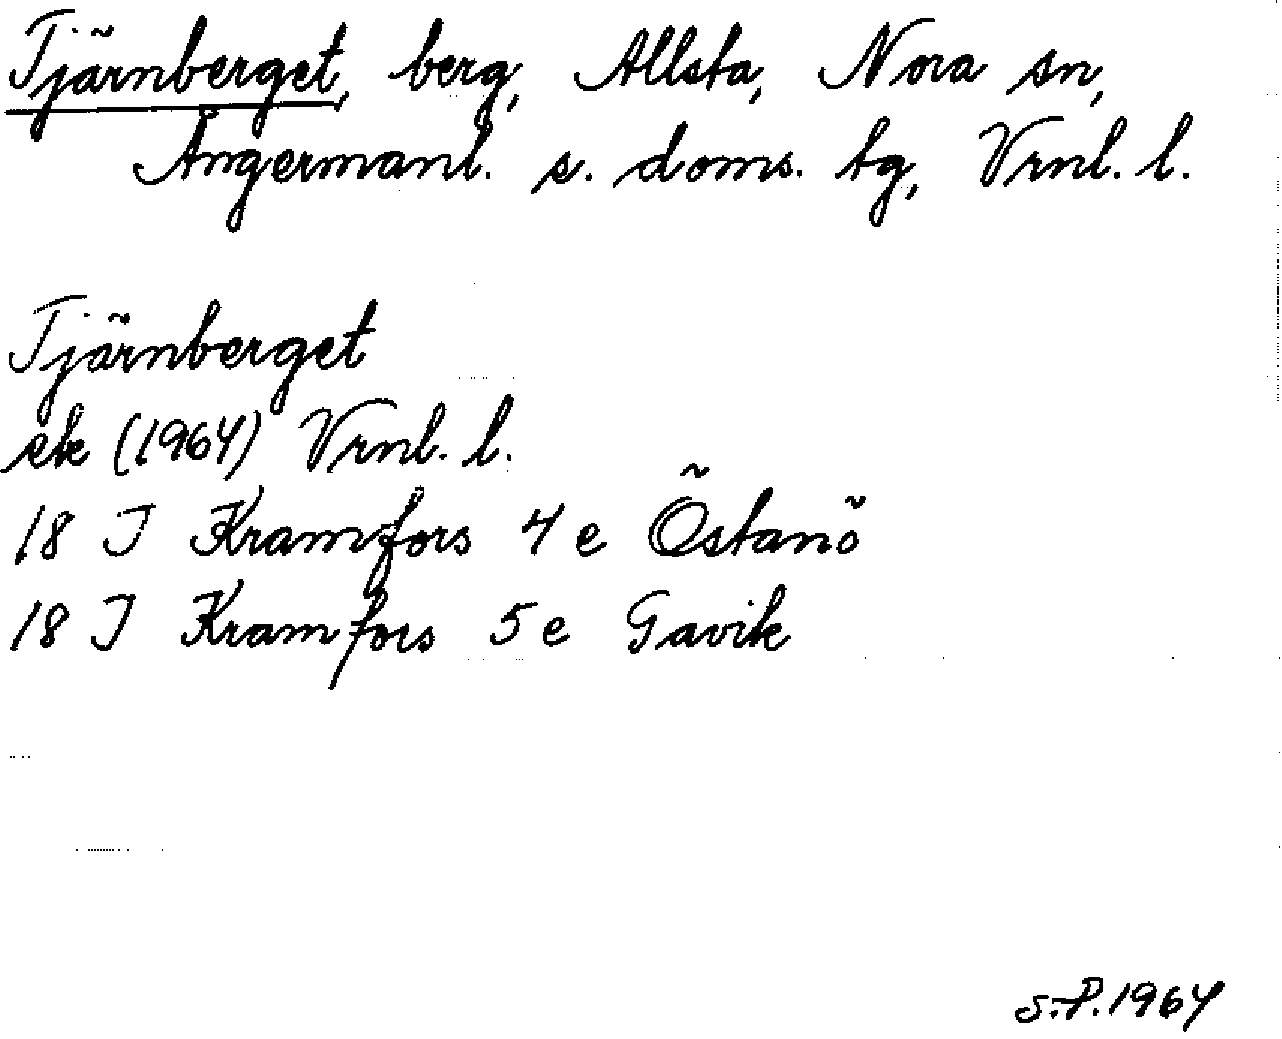 Tjärnberget, berg, Allsta, Nora sn,
Ångermanl. s. doms. tg, Vrnl. l.
Tjärnberget
ek (1964) Vrnl. l.
18 J Kramfors 4 e Östanö
18 J Kramfors 5 e Gavik
S.P. 1964